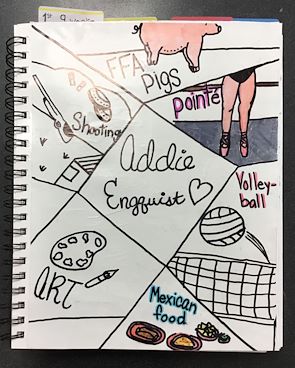 1st 9 weeks
FFA
Pigs
pointé
Shooting
Addie
Engquist
Volley-
ball
ART
Mexican
food